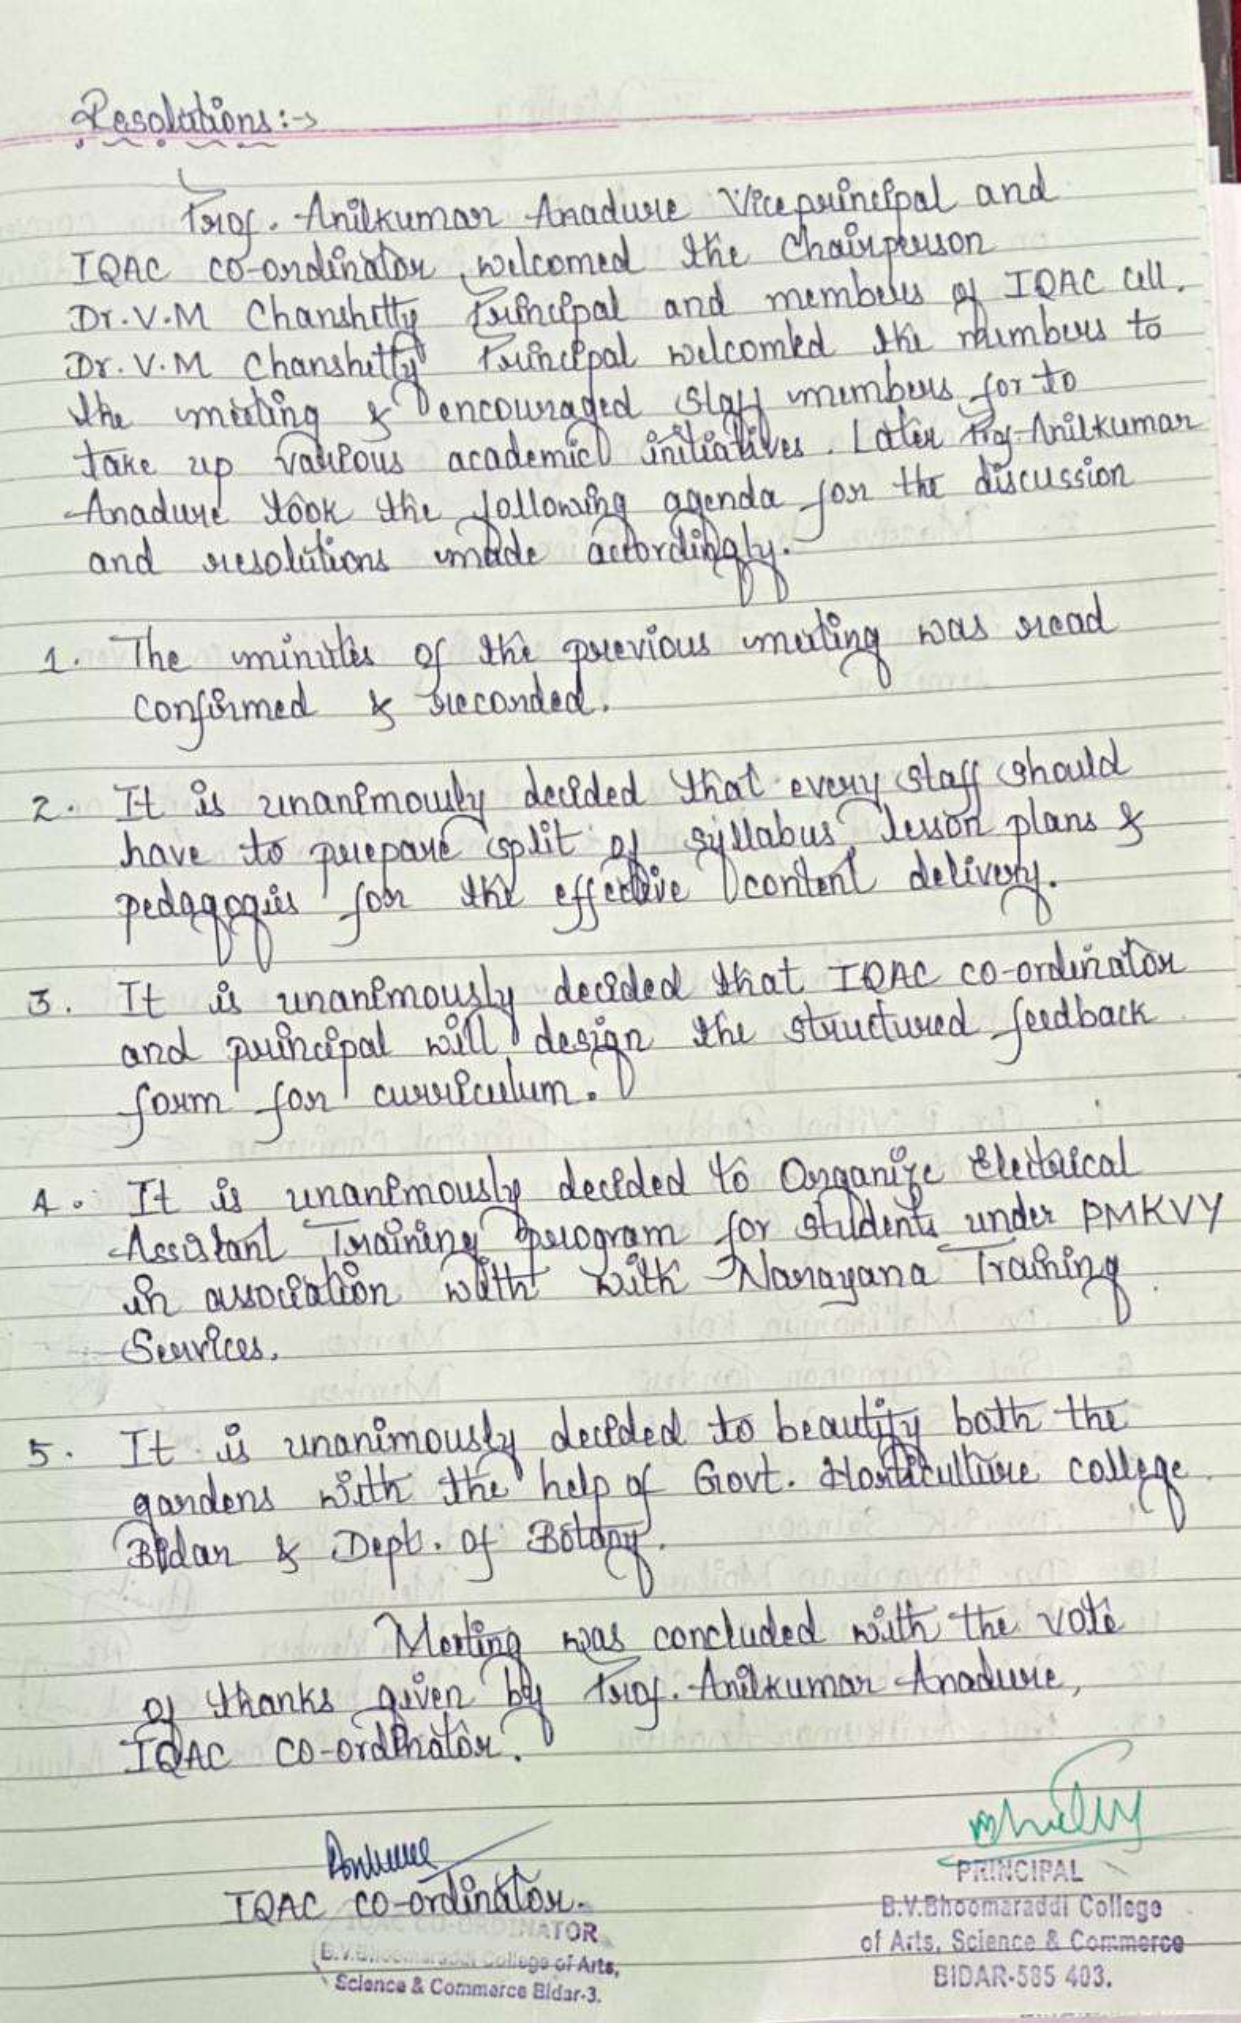 Resolutions:->
Prof. Anilkumar Anadure Viceprincipal and
IQAC co-ordinator, welcomed the Chairperson
Dr. V.M Chanshetty Principal and members of IQAC Cell.
Dr. V.M Chanshetty Principal welcomed the members to
the meeting & encouraged staff members for to
take up various academic initiatives. Later Prof. Anilkumar
Anadure took the following agenda for the discussion
and resolutions made accordingly.
1. The minutes of the previous meeting was read
confirmed & recorded.
2. It is unanimously decided that every staff should
have to prepare split of syllabus, lesson plans &
pedagogies for the effective content delivery.
3. It is unanimously decided that IQAC co-ordinator
and principal will design the structured feedback
form for curriculum.
4. It is unanimously decided to Organize Electrical
Assistant Training program for students under PMKVY
in association with with Narayana Training
Services.
5. It is unanimously decided to beautify both the
gardens with the help of Govt. Horticulture college
Bidar & Dept. of Botany.
Meeting was concluded with the vote
of thanks given by Prof. Anilkumar Anadure,
IQAC co-ordinator.
IQAC co-ordinator.
IQAC CO-ORDINATOR
B.V.Bhoomaraddi College of Arts,
Science & Commerce Bidar-3.
PRINCIPAL
B.V.Bhoomaraddi College
of Arts, Science & Commerce
BIDAR-585 403.